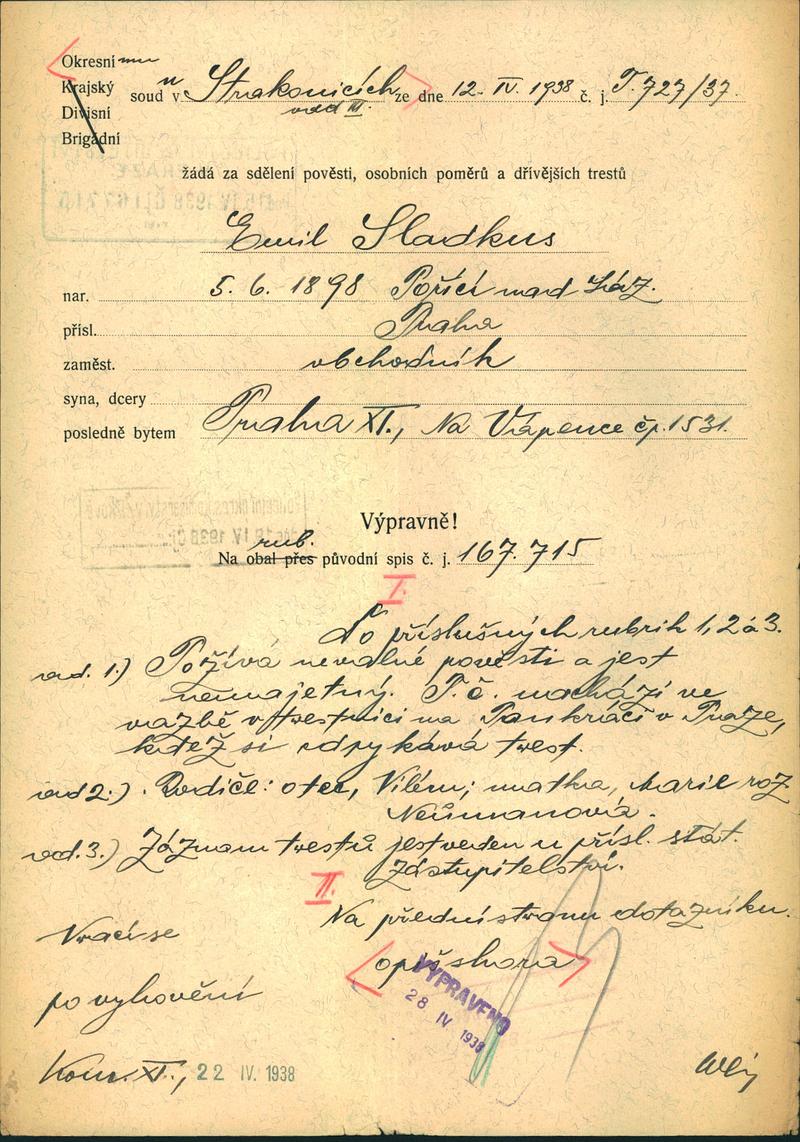 Okresní mu
Krajský
Divisní
Brigádní
soud v Strakonicích ze dne 12. IV. 1938 č. j. T. 727/37.
odd III.
žádá za sdělení pověsti, osobních poměrů a dřívějších trestů
Emil Sladkus
nar. 5. 6. 1898 Poříčí nad Sáz.
přísl. Praha
zaměst. obchodník
syna, dcery
posledně bytem Praha XI., Na Vápence čp. 1531.
Výpravně!
rub.
Na obal přes původní spis č. j. 167.715
I.
Do příslušných rubrik 1, 2 a 3.
ad. 1.) Požívá nevalné pověsti a jest
nemajetný. T. č. nachází ve
vazbě v trestnici na Pankráci v Praze,
kdež si odpykává trest.
ad 2.) Rodiče: otec, Vilém; matka, Marie roz
Neumanová.
ad. 3.) Záznam trestů jest veden u přísl. stát.
zástupitelství.
II.
Na přední stranu dotazníku.
Vrací se
opis shora
po vyhovění
VYPRAVENO
28 IV 1938
Kom. XI., 22 IV. 1938